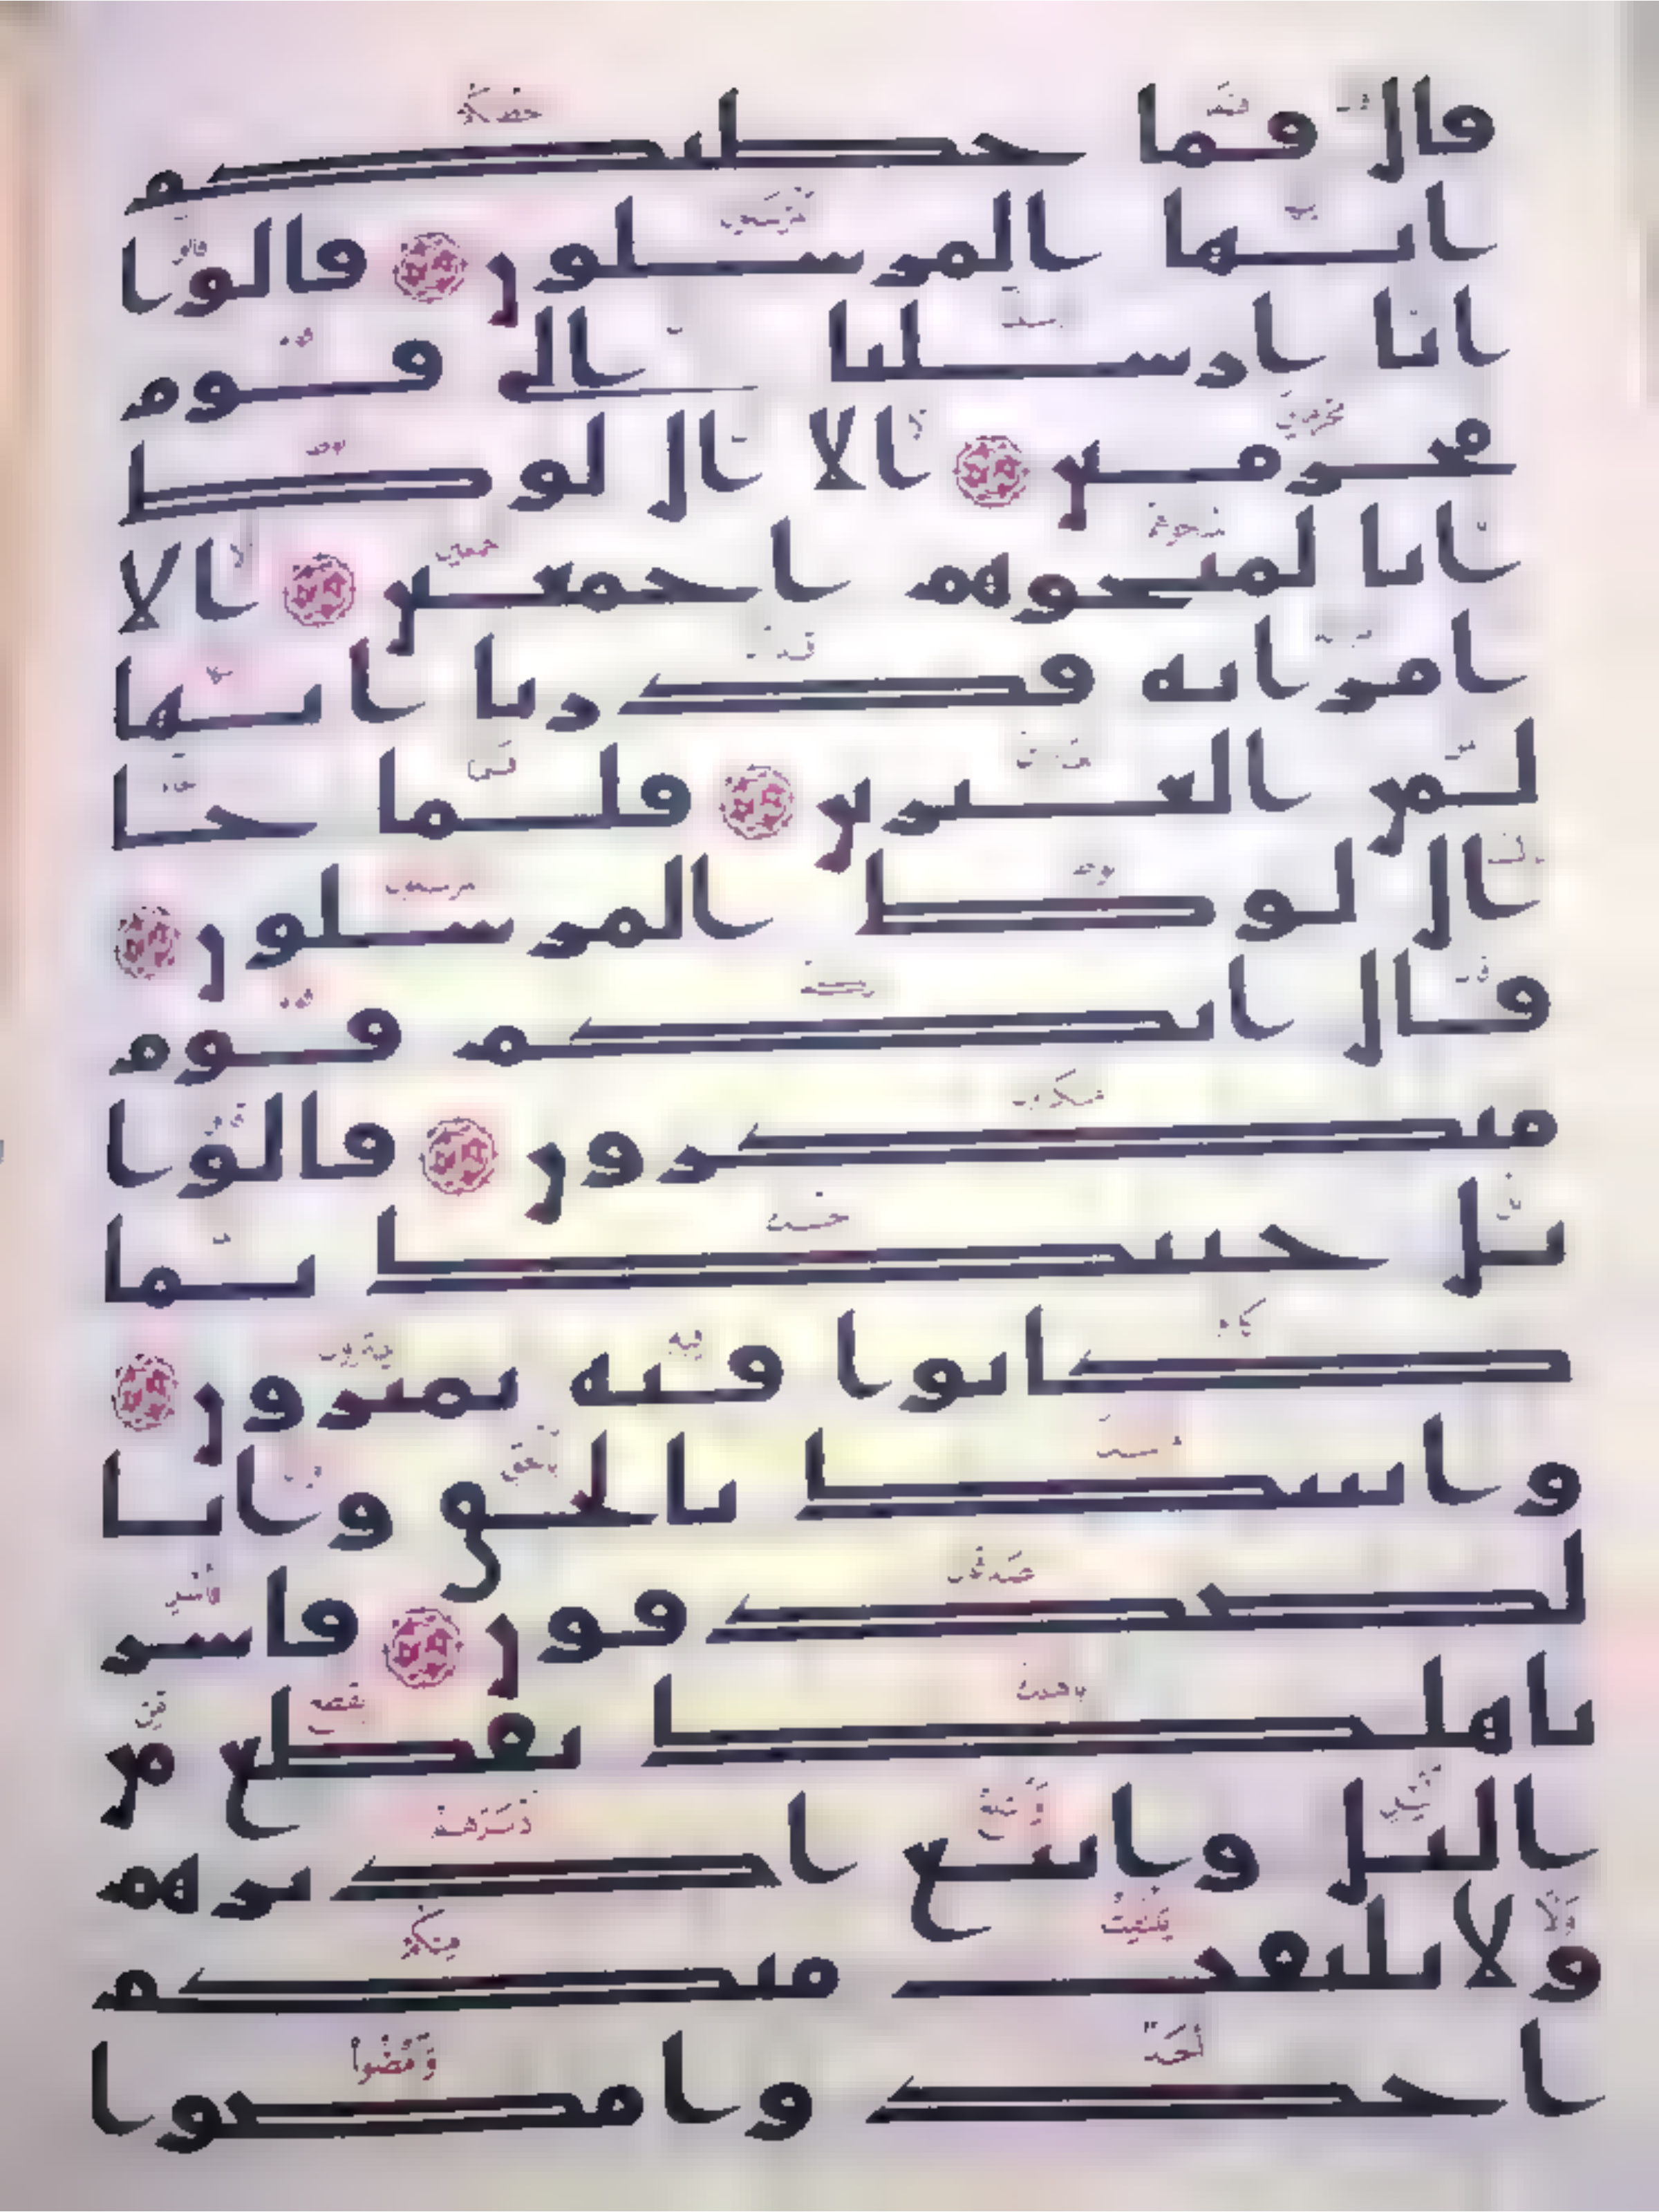 قال فما خطبكم
ايها المرسلون قالوا
انا ارسلنا الى قوم
مجرمين الا ال لوط
انا لمنجوهم اجمعين الا
امراته قدرنا انها
لمن الغبرين فلما جا
ال لوط المرسلون
قال انكم قوم
منكرون قالوا
بل جئنك بما
كانوا فيه يمترون
واتينك بالحق وانا
لصدقون فاسر
باهلك بقطع من
اليل واتبع ادبرهم
ولا يلتفت منكم
احد وامضوا